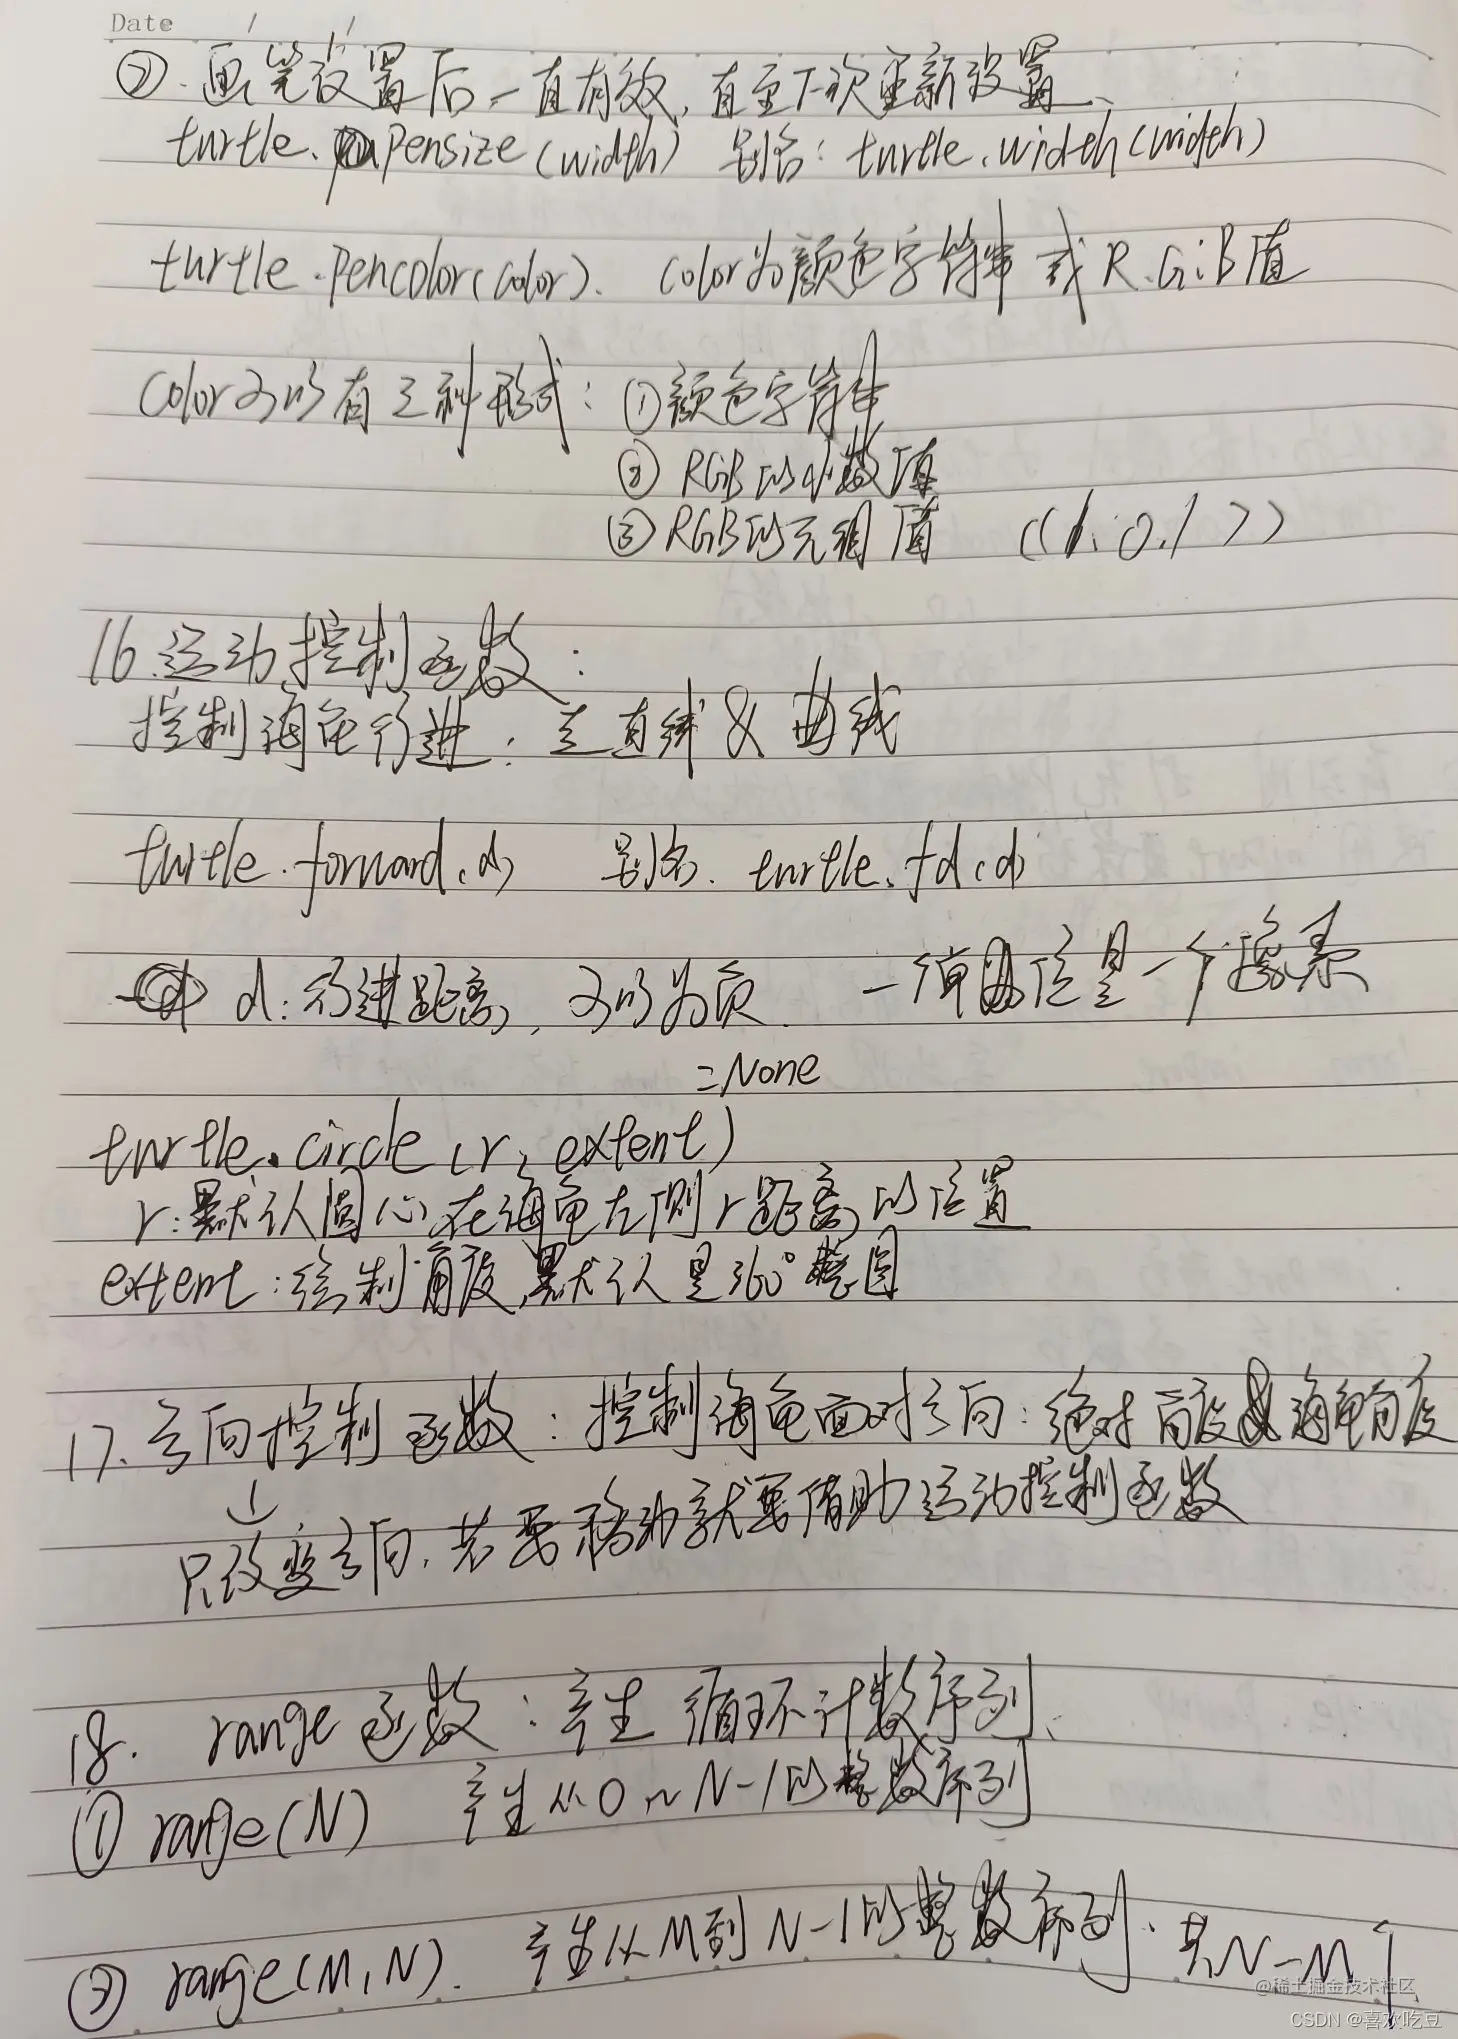 Date / /
②.画笔设置后一直有效,直至下次重新设置、
turtle.pensize(width) 别名:turtle.width(width)
turtle.pencolor(color). color为颜色字符串或R.G.B值
color可以有三种形式:①颜色字符串
② RGB的小数值
③RGB的元组值 ((1.0.1))
16.运动控制函数:
控制海龟行进:走直线 & 曲线
turtle.forward(d) 别名. turtle.fd(d)
d:行进距离,可以为负. 一个单位是一个像素
=None
turtle.circle(r, extent)
r:默认圆心在海龟左侧r距离的位置
extent:绘制角度,默认是360°整圆
17.方向控制函数:控制海龟面对方向:绝对角度&海龟角度
↓
只改变方向,若要移动就要借助运动控制函数
18. range函数:产生循环计数序列、
① range(N) 产生从0~N-1的整数序列
② range(M,N). 产生从M到N-1的整数序列.共N-M个
@稀土掘金技术社区
CSDN @喜欢吃豆